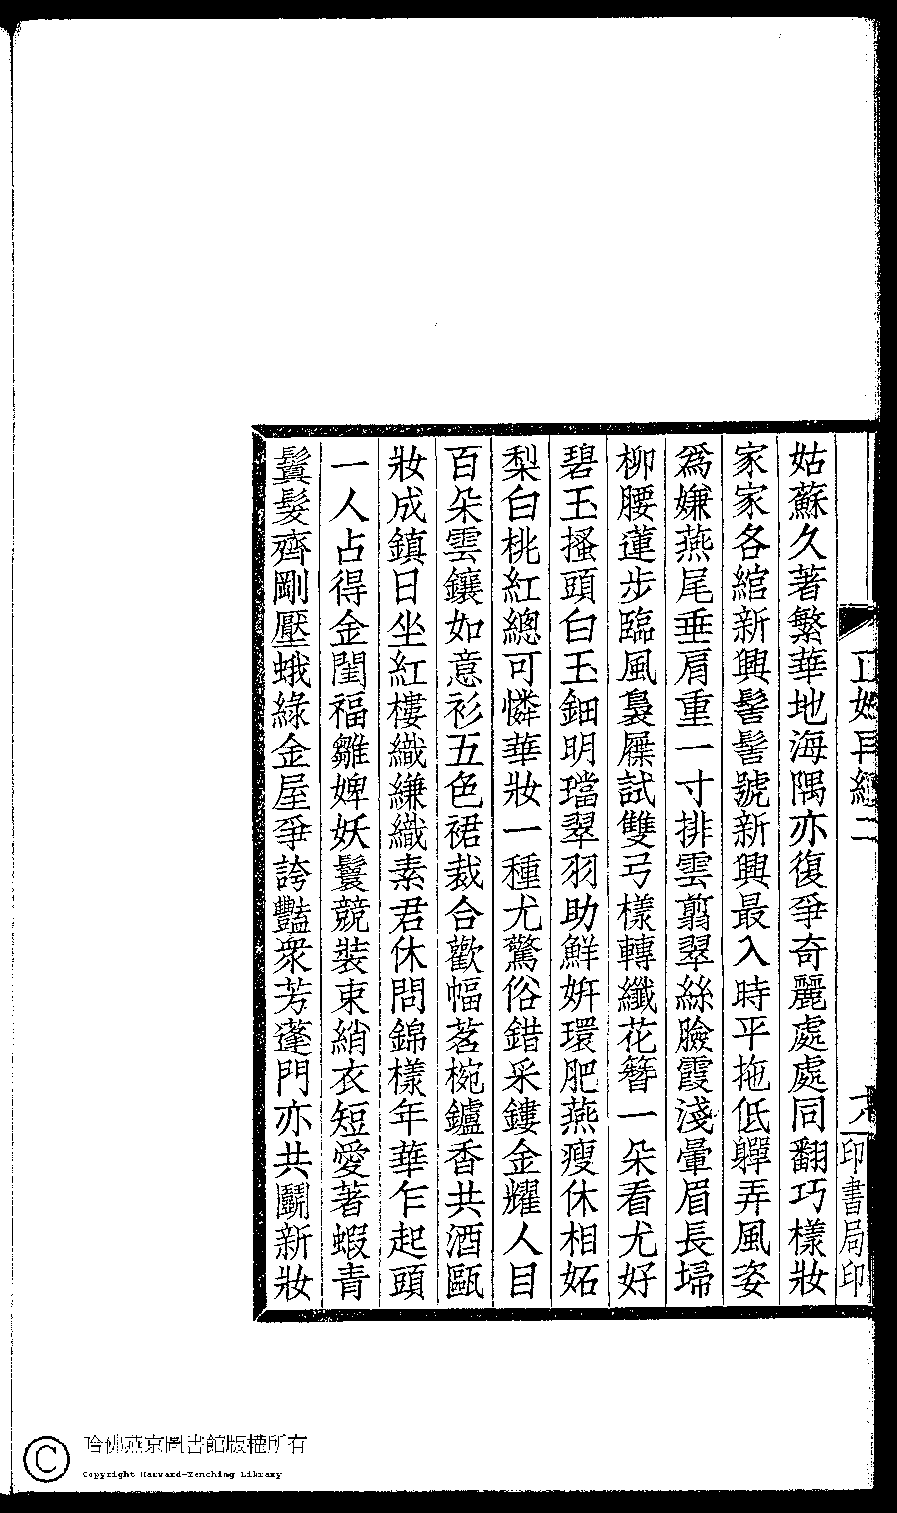 姑蘇久著繁華地海隅亦復爭奇麗處處同翻巧樣妝
家家各綰新興髻髻號新興最入時平拖低嚲弄風姿
爲嫌燕尾垂肩重一寸排雲翦翠絲臉霞淺暈眉長埽
柳腰蓮步臨風裊屧試雙弓樣轉纖花簪一朵看尤好
碧玉搔頭白玉鈿明璫翠羽助鮮妍環肥燕瘦休相妬
梨白桃紅總可憐華妝一種尤驚俗錯采鏤金耀人目
百朵雲鑲如意衫五色裙裁合歡幅茗椀鑪香共酒甌
妝成鎮日坐紅樓織縑織素君休問錦樣年華乍起頭
一人占得金閨福雛婢妖鬟競裝束綃衣短愛著蝦青
鬢髮齊剛壓蛾綠金屋爭誇豔衆芳蓬門亦共鬬新妝
印書局印
哈佛燕京圖書館版權所有
Copyright Harvard-Yenching Library